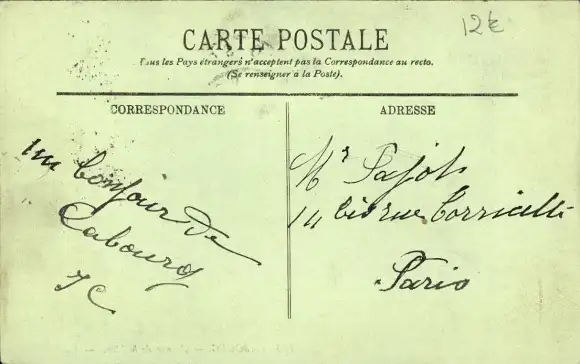 12€
CARTE POSTALE
Tous les Pays étrangers n'acceptent pas la Correspondance au recto.
(Se renseigner à la Poste).
CORRESPONDANCE
un bonjour de
Cabourg
JC
ADRESSE
Mr Pajot
14 bis rue Torricelli
Paris